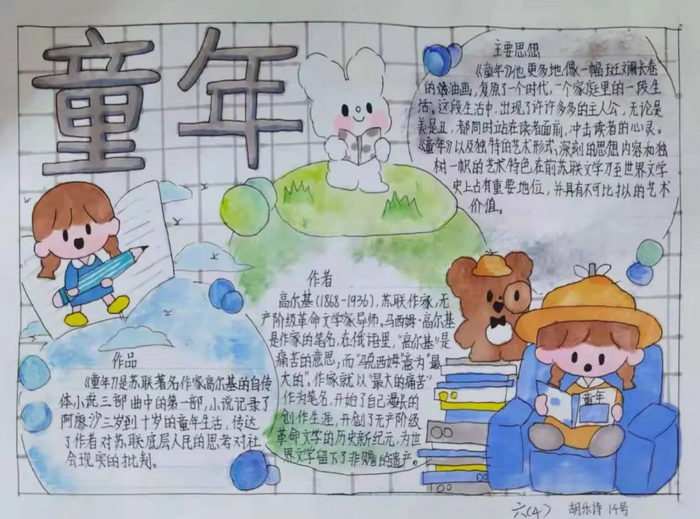 童年
主要思想
《童年》他更多地像一幅班斓长卷
的俄油画，复原了一个时代，一个家庭里的一段生
活。这段生活中，出现了许许多多的主人公，无论是
美是丑，都同时站在读者面前，冲击读者的心灵。
《童年》以及独特的艺术形式，深刻的思想内容和独
树一帜的艺术特色在前苏联文学乃至世界文学
史上占有重要地位，并具有不可比拟的艺术
价值。
作者
高尔基(1868-1936)，苏联作家，无
产阶级革命文学家导师，马西姆·高尔基
是作家的笔名，在俄语里，“高尔基”是
痛苦的意思，而“马克西姆”意为“最
大的”。作家就以“最大的痛苦”
作为笔名，开始了自己漫长的
创作生涯，开创了无产阶级
革命文学的历史新纪元，为世
界文学留下了非赡的遗产。
作品
《童年》是苏联著名作家高尔基的自传
体小说三部曲中的第一部，小说记录了
阿廖沙三岁到十岁的童年生活，传达
了作者对苏联底层人民的思考对社
会现实的批判。
童年
六(4) 胡乐诗 14号